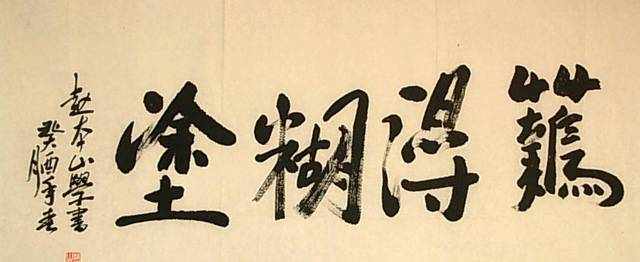 難得糊塗
趙本山學書
癸酉年春